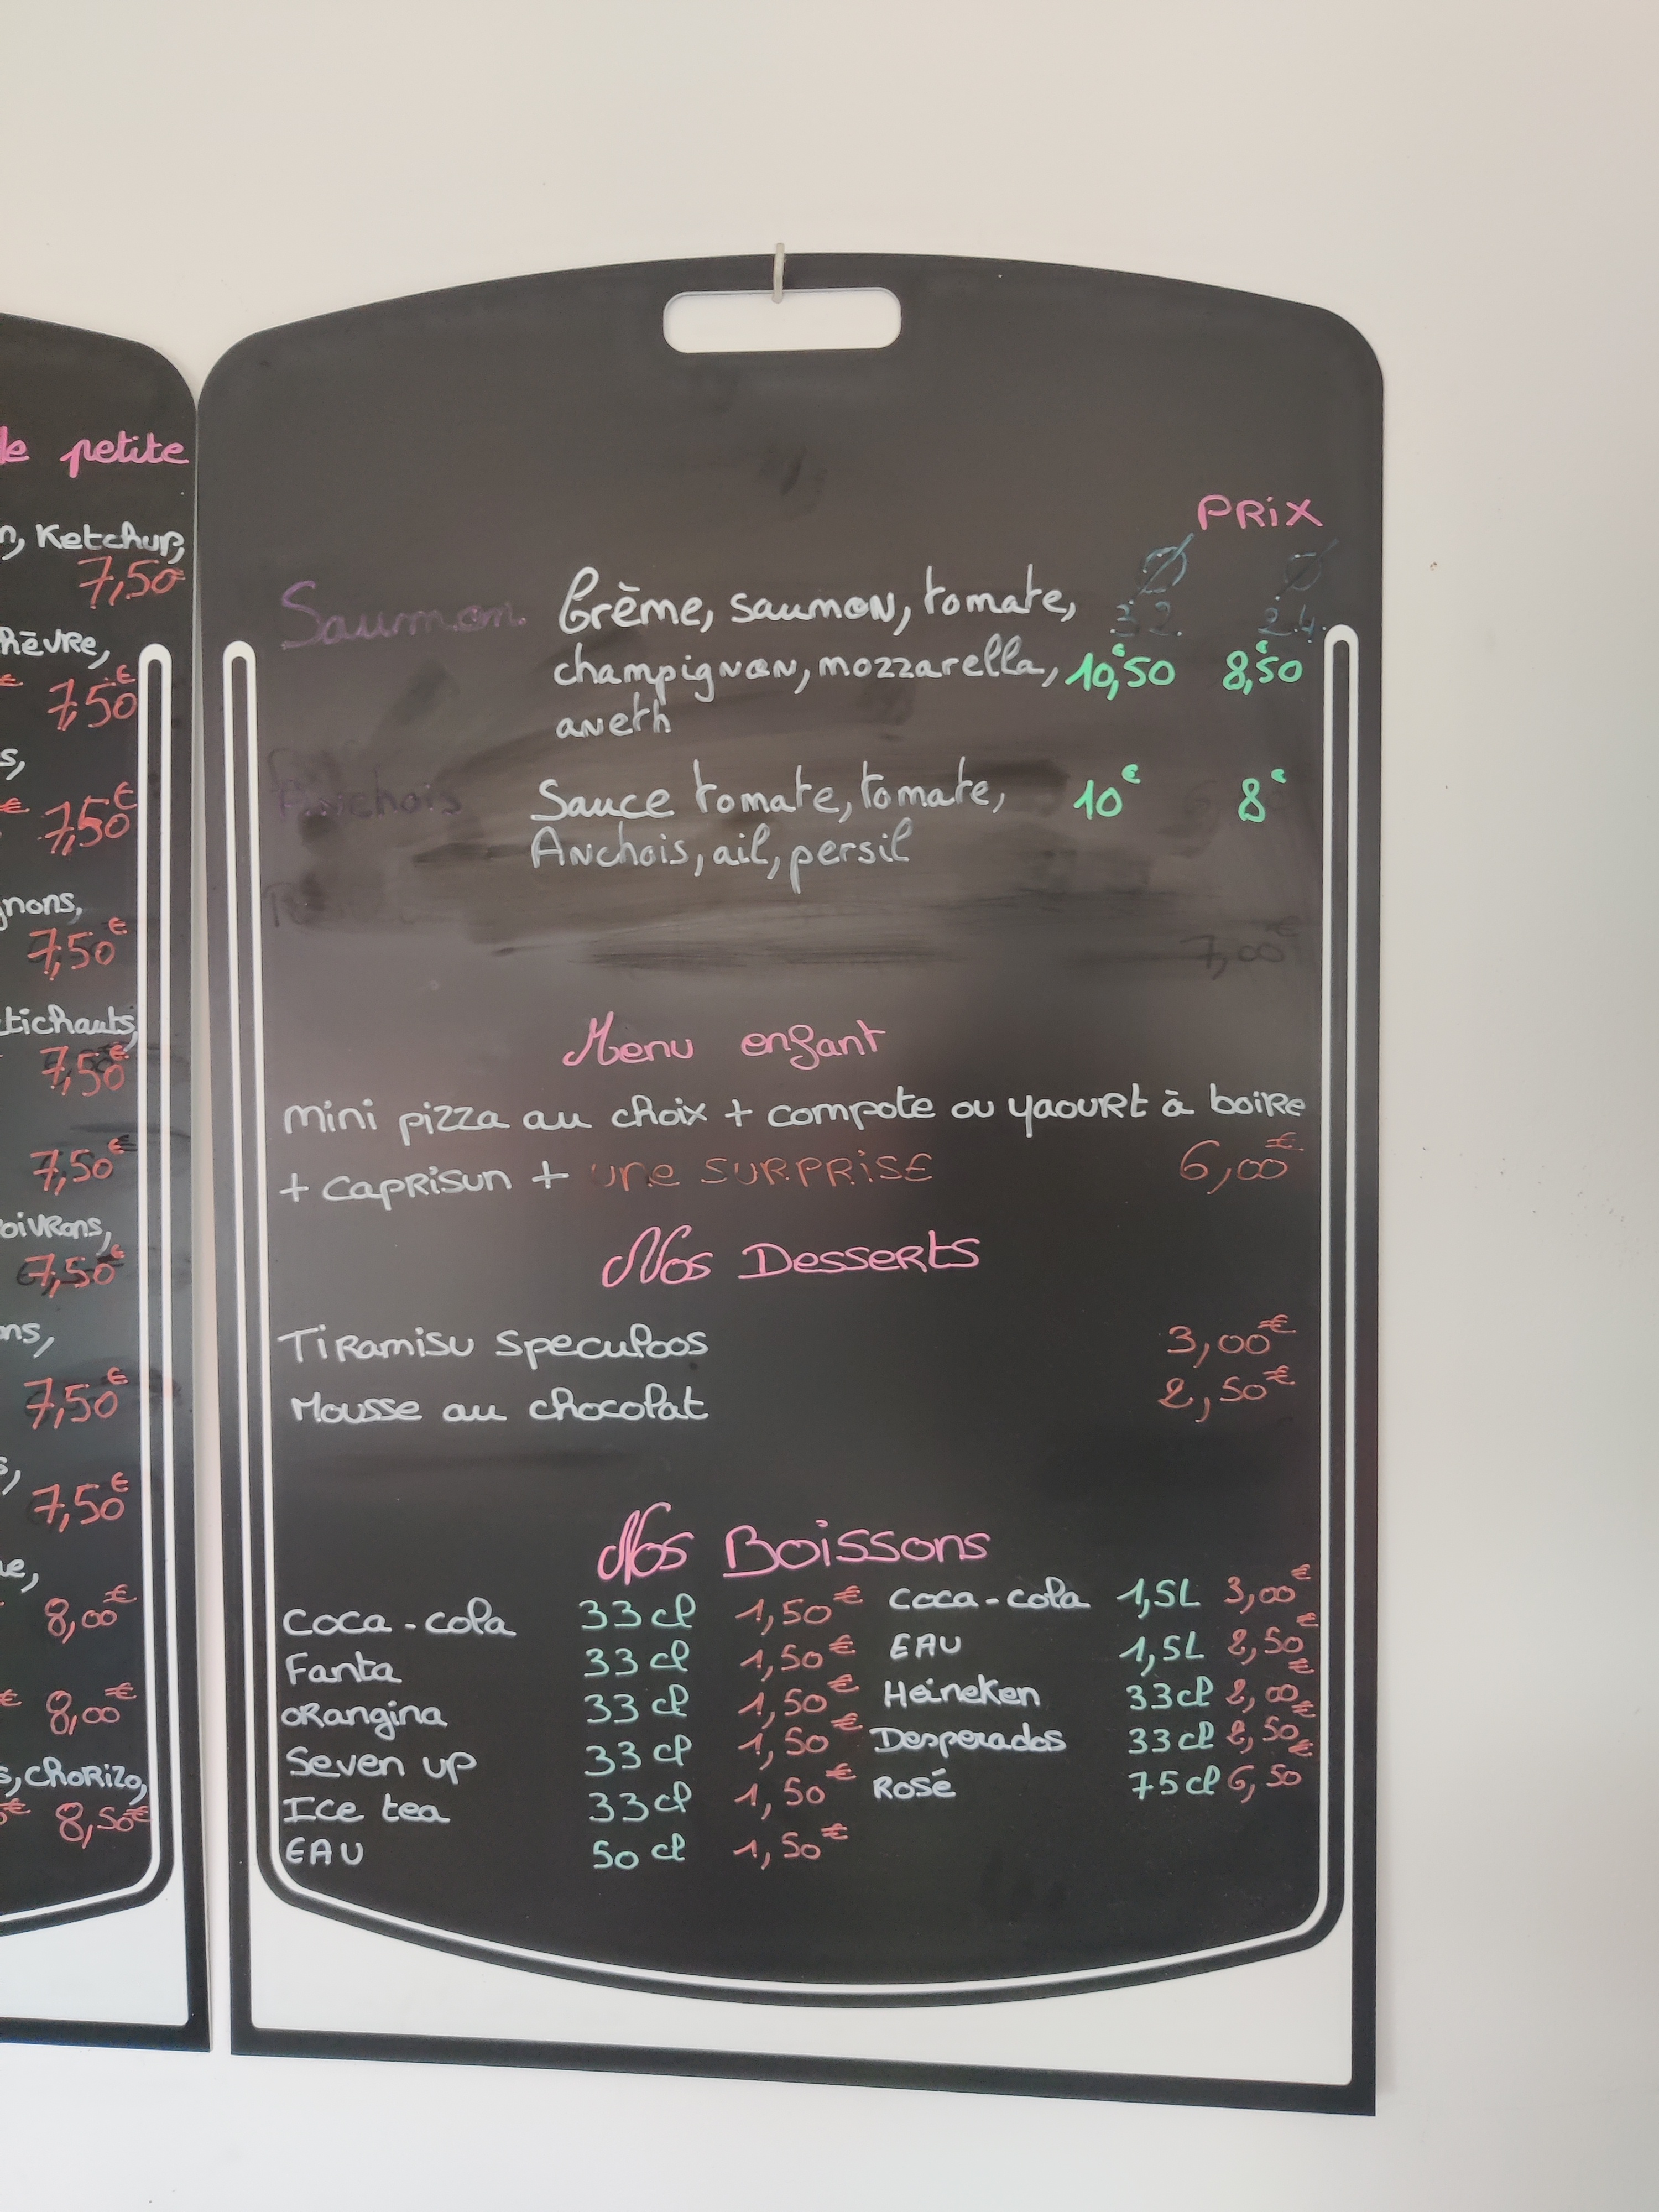 le petite
n, Ketchup,
7,50€
hèvre,
€ 7,50€
s,
€ 7,50€
gnons,
7,50€
tichauts,
7,50€
7,50€
oivrons,
7,50€
ons,
7,50€
s,
7,50€
ue,
8,00€
€ 8,00€
s, chorizo,
€ 8,50€
PRIX
Ø Ø
Saumon Crème, saumon, tomate, 32 24
champignon, mozzarella, 10,€50 8,€50
aneth
Anchois Sauce tomate, tomate, 10€ 8€
Anchois, ail, persil
7,00€
Menu enfant
Mini pizza au choix + compote ou yaourt à boire
+ caprisun + une SURPRISE 6,00€
Nos Desserts
Tiramisu speculoos 3,00€
Mousse au chocolat 2,50€
Nos Boissons
Coca-cola 33 cl 1,50€ Coca-cola 1,5L 3,00€
Fanta 33 cl 1,50€ EAU 1,5L 2,50€
Orangina 33 cl 1,50€ Heineken 33 cl 2,00€
Seven up 33 cl 1,50€ Desperados 33 cl 2,50€
Ice tea 33 cl 1,50€ Rosé 75 cl 6,50€
EAU 50 cl 1,50€